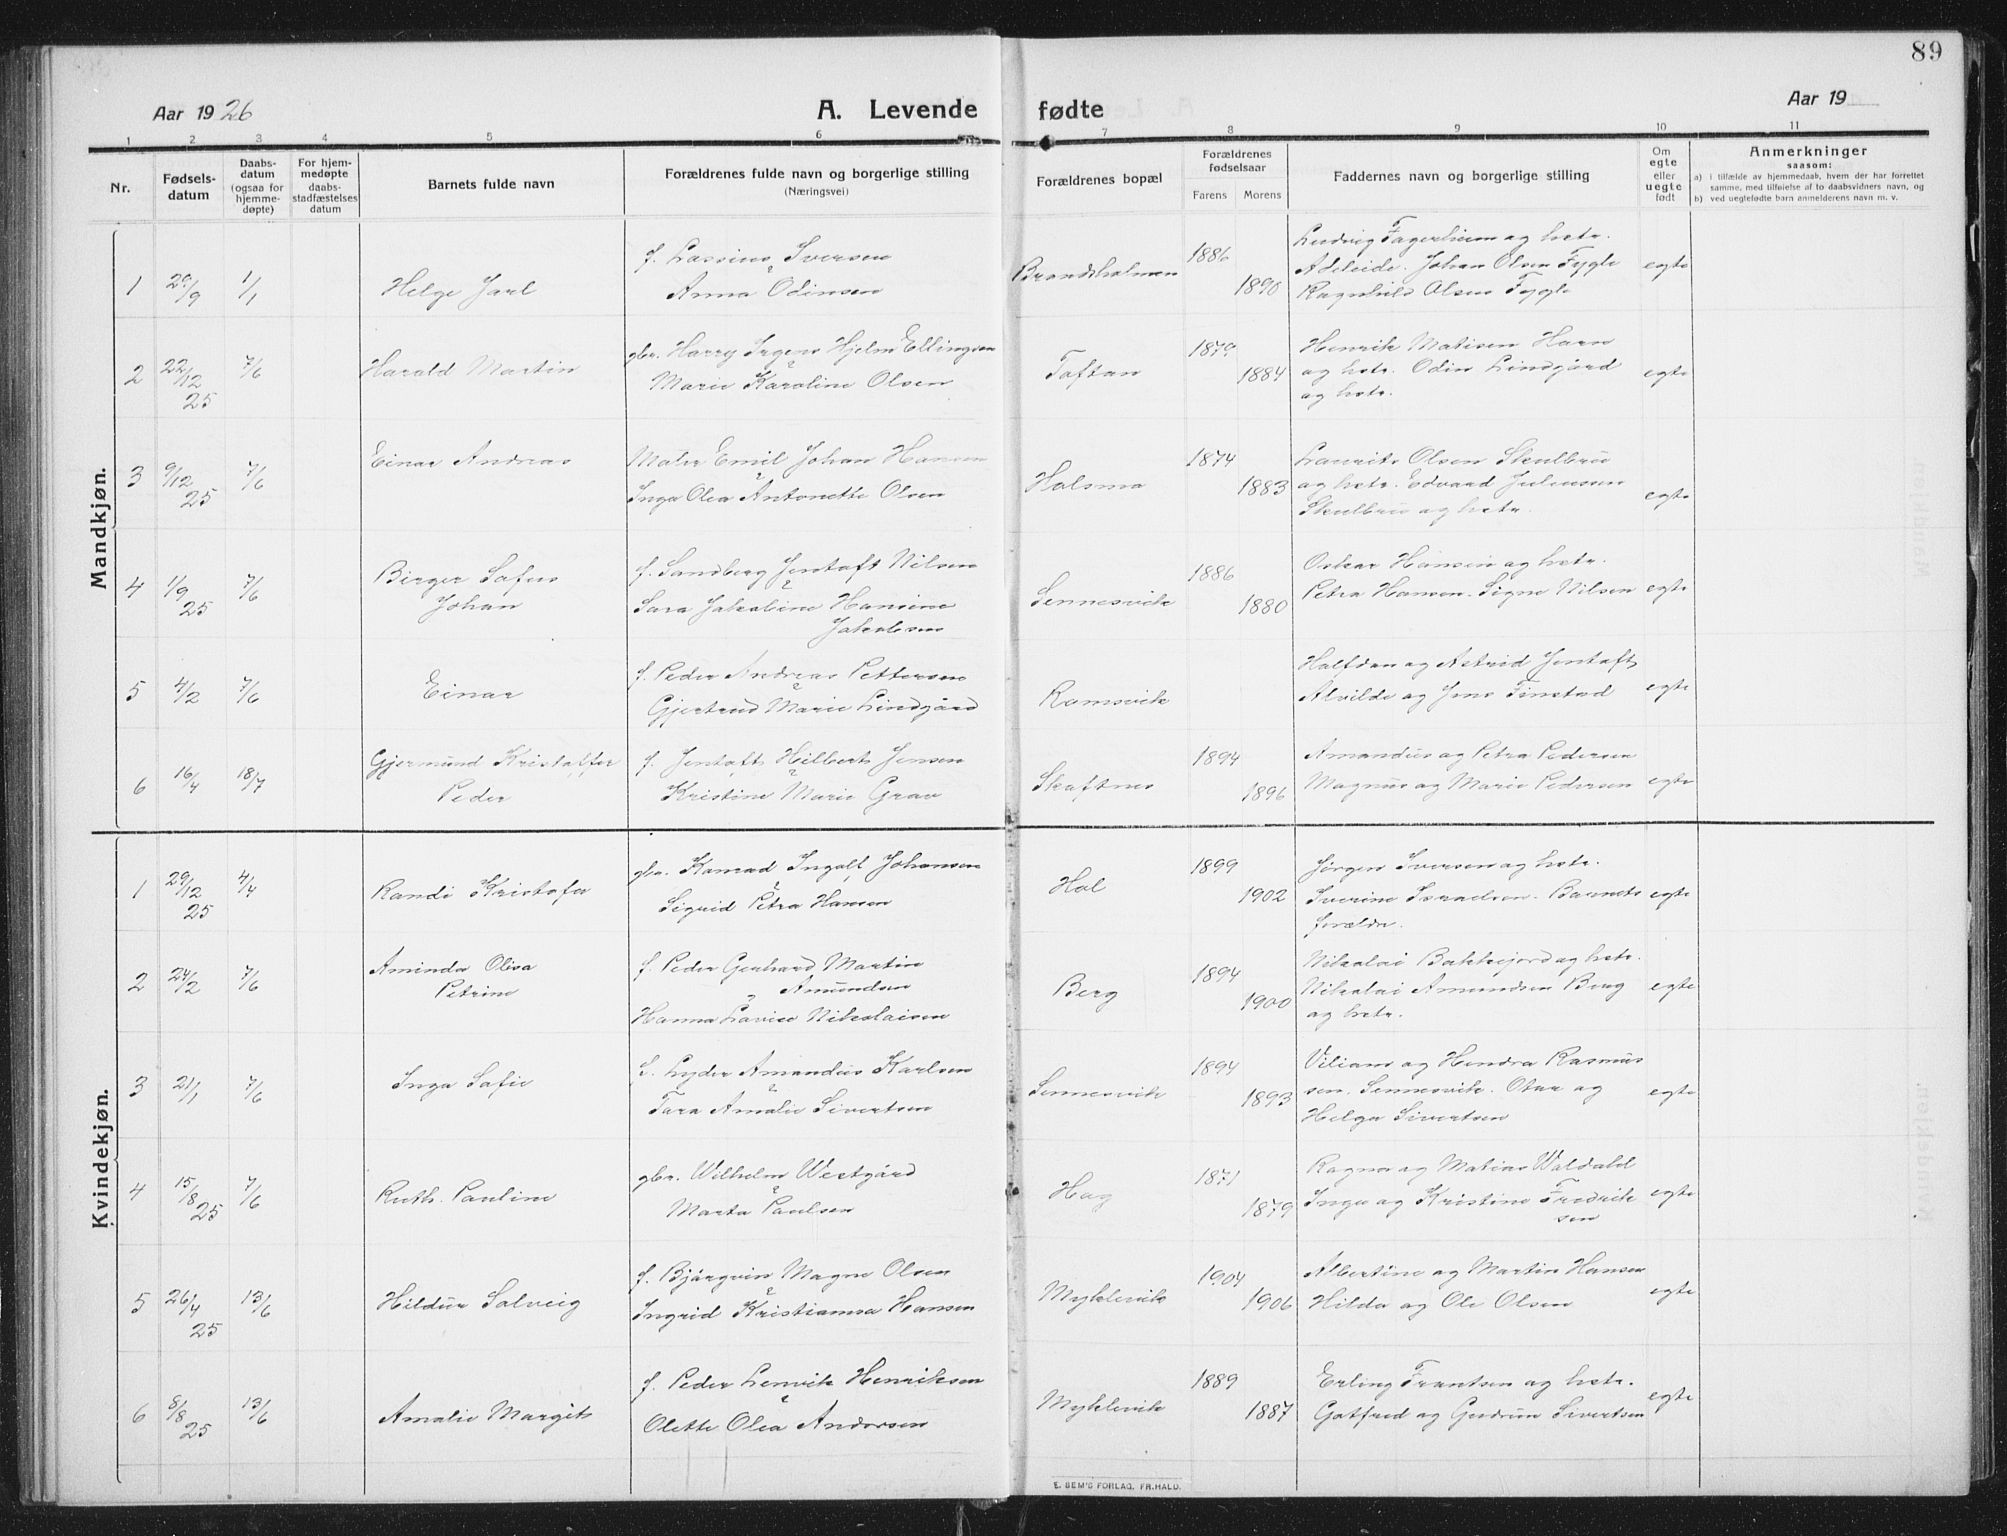 89
Aar 1926
A. Levende
fødte
Aar 19
1 2 3 4 5 6 7 8 9 10 11
Nr.
Fødsels-
datum
Daabs-
datum
(ogsaa for
hjemme-
døpte)
For hjem-
medøpte
daabs-
stadfæstelses
datum
Barnets fulde navn
Forældrenes fulde navn og borgerlige stilling
(Næringsvei)
Forældrenes bopæl
Forældrenes
fødselsaar
Farens Morens
Faddernes navn og borgerlige stilling
Om
egte
eller
uegte
født
Anmerkninger
saasom:
a) i tilfælde av hjemmedaab, hvem der har forrettet
samme, med tilføielse af to daabsvidners navn, og
b) ved uegtefødte barn anmelderens navn m. v.
Mandkjøn.
1 29/9 1/1 Helge Jarl
f. Lassius Iversen
Anna Odinsen
Brandsholmen 1886 1890
Ludvig Fagerheim og hstr.
Adeleide. Johan Olsen Fygle
Ragnhild Olsen Fygle
egte
2 22/12 25 7/6 Harald Martin
gbr. Harry Irgens Hjelm Ellingsen
Marie Karoline Olsen
Toftan 1879 1884
Henrik Matisen Horn
og hstr. Odin Lindgård
og hstr.
egte
3 9/12 25 7/6 Einar Andreas
Maler Emil Johan Hansen
Inga Olea Antonette Olsen
Holsmo 1874 1883
Laurits Olsen Skulbru
og hstr. Edvard Juliussen
Skulbru og hstr.
egte
4 1/9 25 7/6 Birger Sofus
Johan
f. Sandberg Jentoft Nilsen
Sara Jakobine Hansine
Jakobsen
Sennesvik 1886 1880
Oskar Hansen og hstr.
Petra Hansen. Signe Nilsen
egte
5 4/2 7/6 Einar
f. Peder Andreas Pettersen
Gjertrud Marie Lindgård
Ramsvik
Halfdan og Astrid Jentoft
Alvilde og Jens Finstad
egte
6 16/4 18/7 Gjermund Kristoffer
Peder
f. Jentoft Hilbert Jensen
Kristine Marie Grav
Skaftnes 1894 1896
Amandus og Petra Pedersen
Magnus og Marie Pedersen
egte
Kvindekjøn.
1 29/12 25 4/4 Randi Kristofa
gbr. Konrad Ingolf Johansen
Sigrid Petra Hansen
Hol 1899 1902
Jørgen Iversen og hstr.
Iverine Israelsen. Barnets
forældre.
egte
2 24/2 7/6 Aminda Olisa
Petrine
f. Peder Gerhard Martin
Amundsen
Hanna Lovise Nikolaisen
Berg 1894 1900
Nikolai Bakkejord og hstr.
Nikolai Amundsen Berg
og hstr.
egte
3 21/1 7/6 Inga Sofie
f. Lyder Amandus Karlsen
Tora Amalie Sivertsen
Sennesvik 1894 1893
Viliam og Hendra Rasmus
sen. Sennesvik. Otar og
Helga Sivertsen
egte
4 15/8 25 7/6 Ruth Pauline
gbr. Wilhelm Westgård
Marta Paulsen
Hag 1871 1879
Ragna og Matias Woldahl
Inga og Kristine Fredrik
sen
egte
5 26/4 25 13/6 Hildur Solveig
f. Bjørgvin Magne Olsen
Ingrid Kristiansa Hansen
Myklevik 1904 1906
Albertine og Martin Hansen
Hilda og Ole Olsen
egte
6 8/8 25 13/6 Amalie Margit
f. Peder Lenvik Henriksen
Olette Olea Andorsen
Myklevik 1889 1887
Erling Frantsen og hstr.
Gotfred og Gudrun Sivertsen
egte
E. SEM'S FORLAG, FR.HALD.